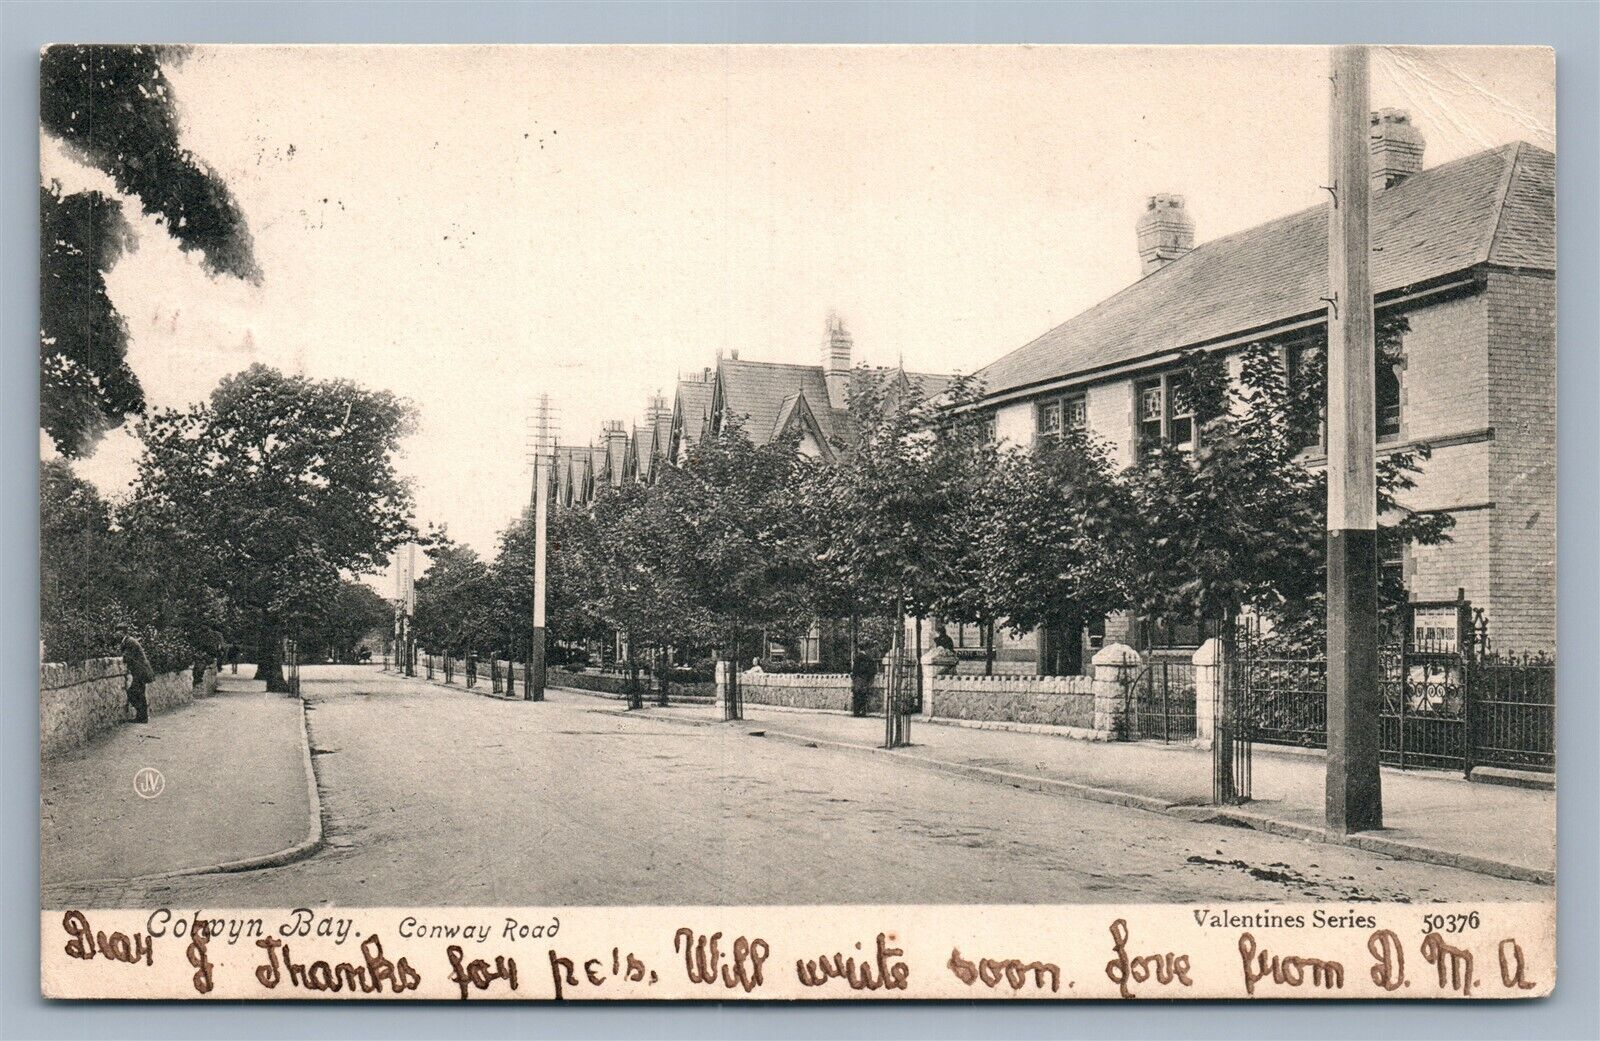 REV. JOHN EDWARDS
J.V.
Colwyn Bay. Conway Road
Valentines Series 50376
Dear J. Thanks for pc's. Will write soon. Love from D. M. A